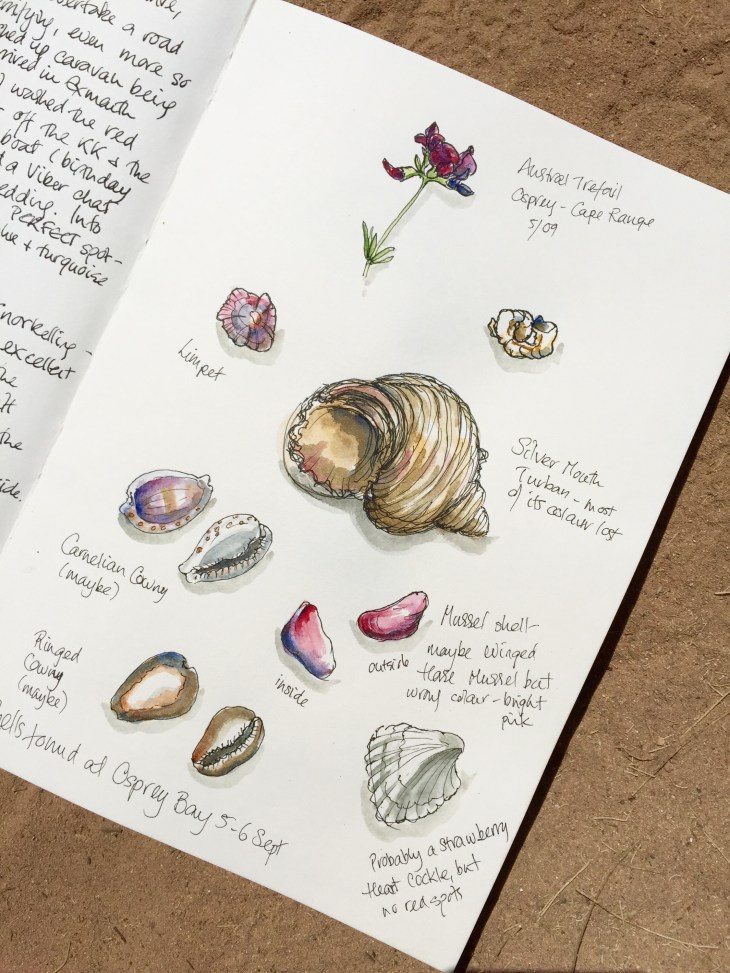 undertake a road
even more so
caravan being
arrived in Exmouth
washed the red
off the KK & the
boat (birthday
a Viber chat
wedding. Into
PERFECT spot-
blue + turquoise
snorkelling -
excellent
the
it
the
side.
Austral Trefoil
Osprey - Cape Range
5/09
Limpet
Silver Mouth
Turban - most
of its colour lost
Carnelian Cowry
(maybe)
Mussel shell-
maybe winged
Hase Mussel but
wrong colour - bright
pink
outside
inside
Ringed
Cowry
(maybe)
Shells found at Osprey Bay 5-6 Sept
Probably a strawberry
Heart Cockle, but
no red spots